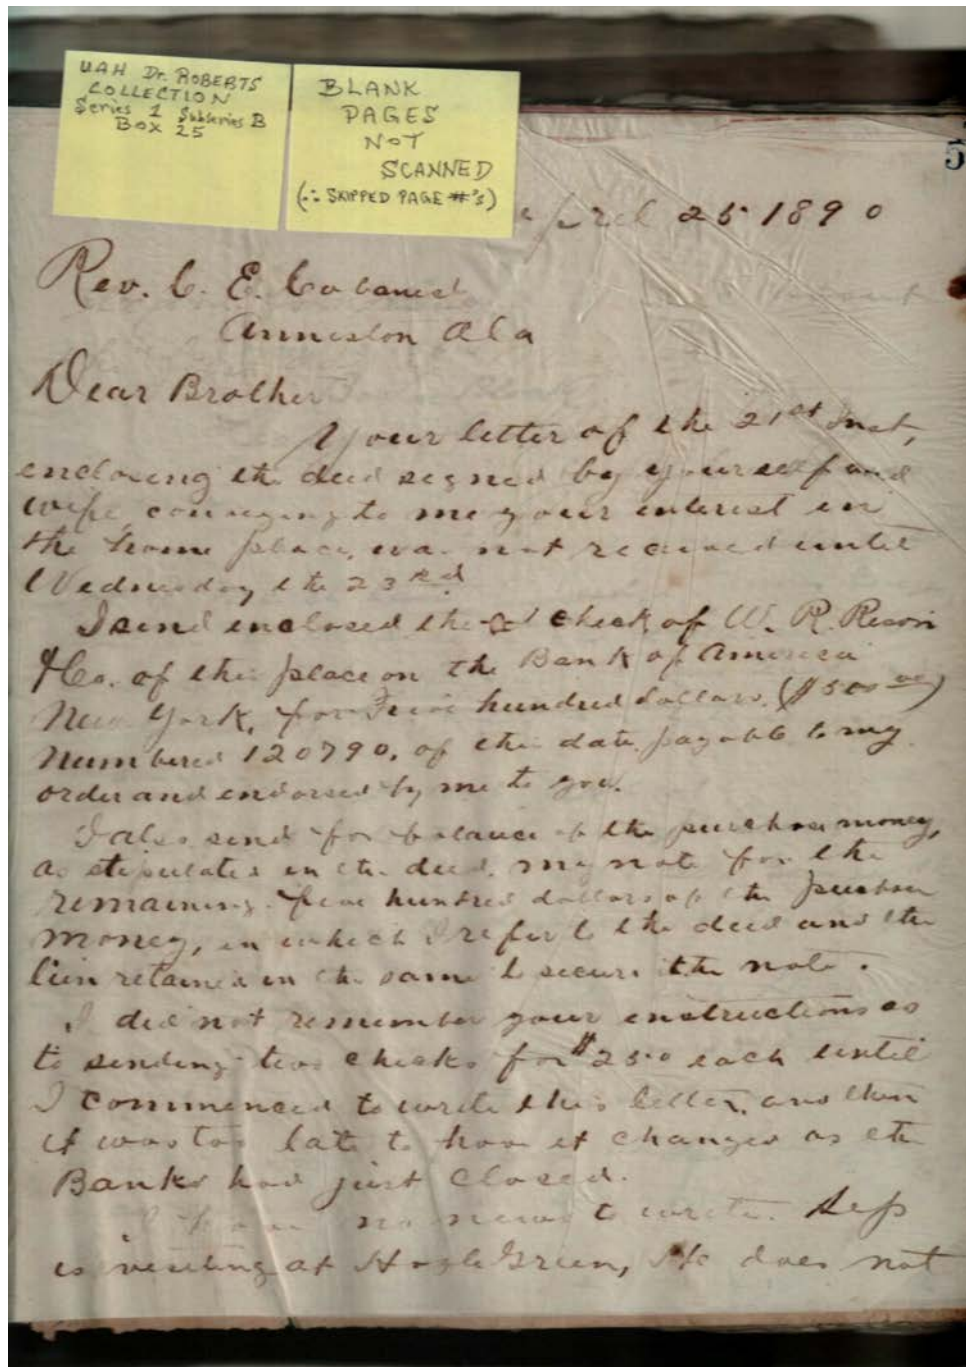 UAH Dr. ROBERTS
COLLECTION
Series 1 Subseries B
BOX 25
BLANK
PAGES
NOT
SCANNED
(∴ SKIPPED PAGE #'s)
5
April 25 1890
Rev. C. E. Cabaniss
Anniston Ala
Dear Brother
Your letter of the 21st Inst,
enclosing the deed signed by yourself and
wife, conveying to me your interest in
the home place, was not received until
Wednesday the 23rd
I send enclosed the check of W. R. Rison
& Co. of this place on the Bank of America
New York, for Five hundred dollars ($500 00)
Numbered 120790, of this date, payable to my
order and endorsed by me to you.
I also send for balance of the purchase money,
as stipulated in the deed, my note for the
remaining five hundred dollars of the purchase
money, in which I refer to the deed and the
lien retained in the same to secure the note.
I did not remember your instructions as
to sending two checks for $250 each until
I commenced to write this letter, and then
it was too late to have it changed as the
Banks had just closed.
I have no news to write. Sep
is visiting at Green, He does not